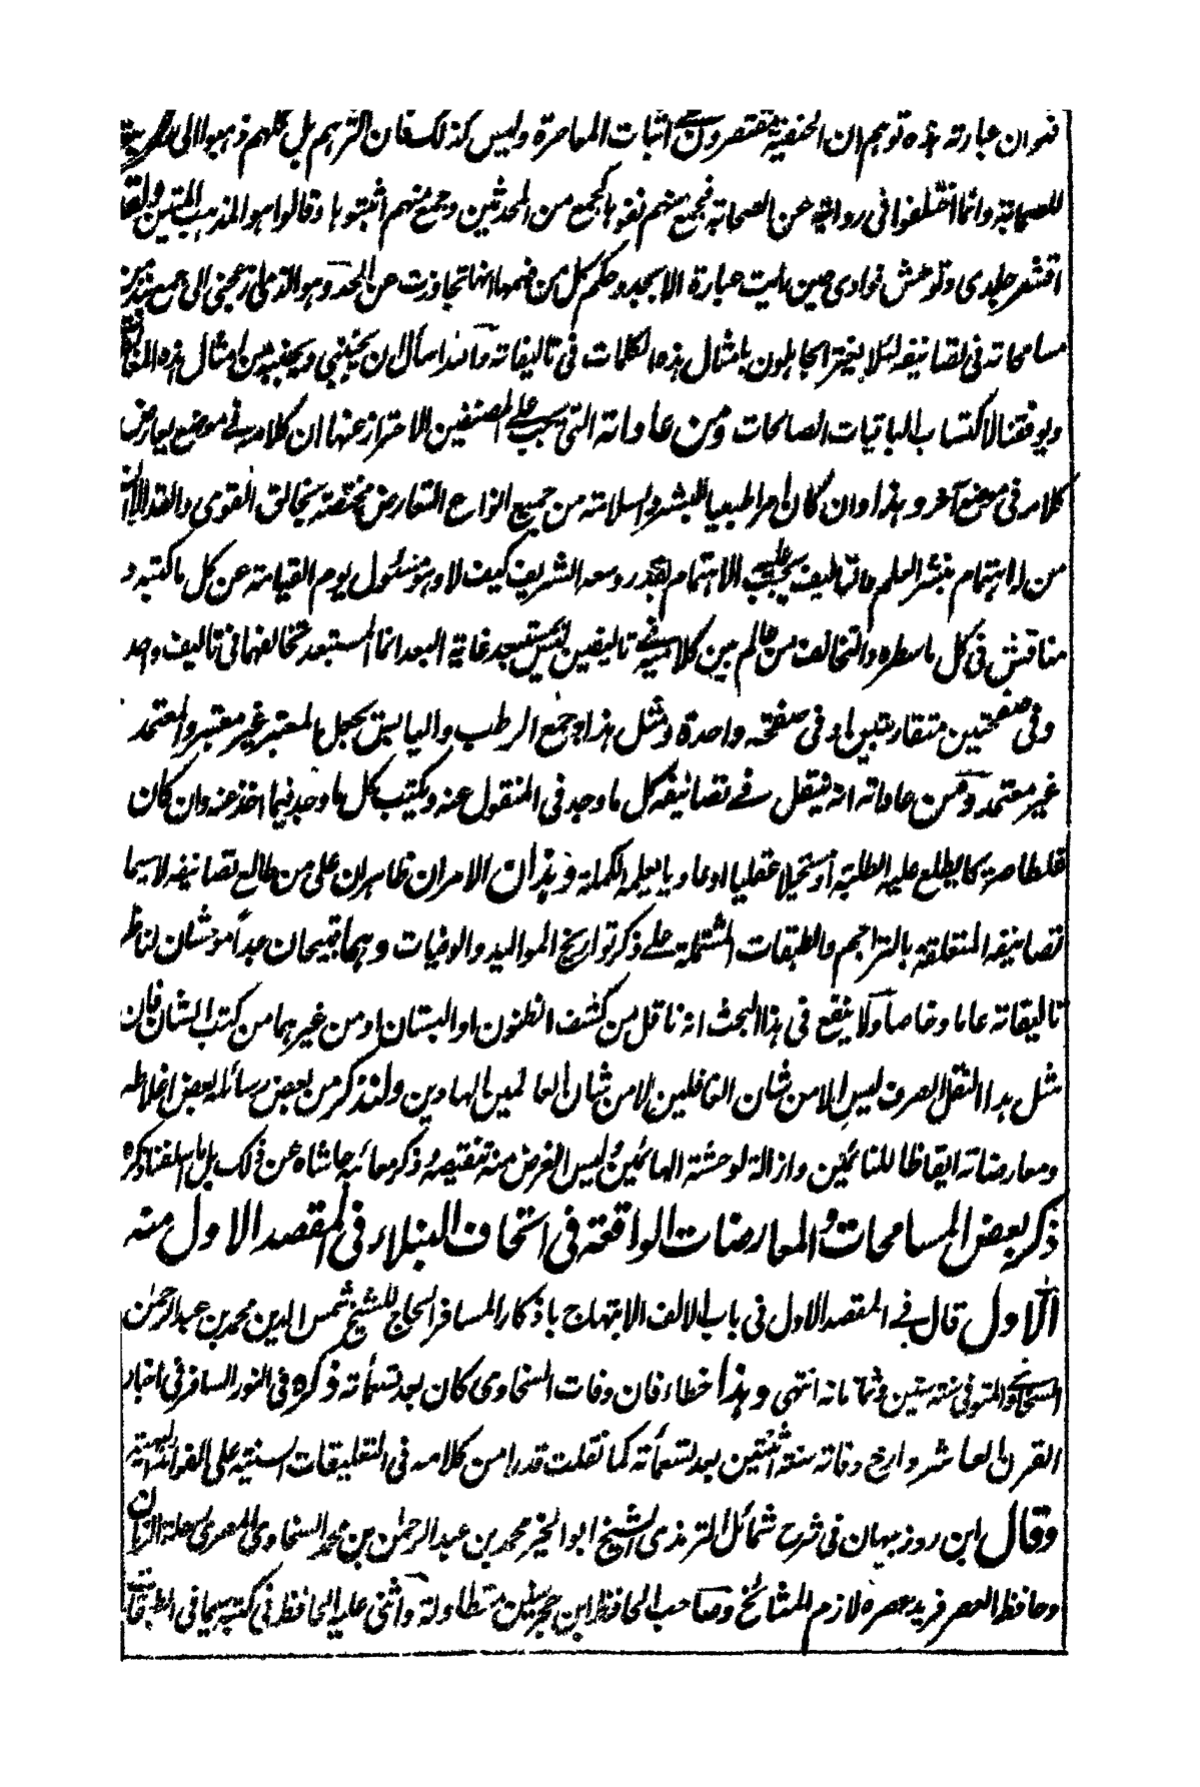 فهو ان عبارته هذه توهم ان الحنفية مقتصرون على اثبات المعاصرة وليس كذلك فان اكثرهم بل كلهم ذهبوا الى
للصحابة وانما اختلفوا فى روايته عن الصحابة فجمع منهم نفوها كجمع من المحدثين وجمع منهم اثبتوها وقالوا هو المذهب المتين
اقشعر جلدى وتوحش فوادى حين رأيت عبارة الابجد وحكم كل من فهمها انها تجاوزت عن الحد وهو الذى ازعجنى الى جمع
مسامحاته فى تصانيفه لئلا يغتر الجاهلون بامثال هذه الكلمات فى تاليفاته والله اسأل ان يجنبنى ويجنبه من امثال هذه
ويوفقنا لاكتساب الباقيات الصالحات ومن عاداته التى يجب على المصنفين الاحتراز عنها ان كلامه فى موضع يعارض
كلامه فى موضع آخر وهذا وان كان امرا طبعيا للبشر والسلامة من جميع انواع التعارض مختصة بخالق القوى والقدر
من له اهتمام بنشر العلم والتاليف يجب عليه الاهتمام بقدر وسعه الشريف كيف لا وهو مسئول يوم القيامة عن كل ما كتبه و
مناقش فى كل ما سطره والتخالف من عالم بين كلاميه فى تاليفين ليس بمستبعد غاية البعد انما المستبعد تخالفهما فى تاليف واحد
وفى صفحتين متقاربتين او فى صفحة واحدة ومثل هذا وجمع الرطب واليابس يجعل المعتبر غير معتبر والمعتمد
غير معتمد ومن عاداته انه ينقل فى تصانيفه كل ما وجد فى المنقول عنه ويكتب كل ما وجد فيما اخذ عنه وان كان
غلطا صريحا يطلع عليه الطلبة او مستحيلا عقليا او عاديا يعلمه الكملة وهذان الامران ظاهران على من طالع تصانيفه لا سيما
تصانيفه المتعلقة بالتراجم والطبقات المشتملة على ذكر تواريخ المواليد والوفيات وهما قبيحان جدا موحشان لناظر
تاليفاته عاما وخاصا ولا ينفع فى هذا البحث انه ناقل من كشف الظنون او البستان او من غيرهما من كتب الشان فان
مثل هذا النقل الصرف ليس الا من شان الغافلين لا من شان العالمين الهادين ولنذكر من بعض رسائله بعض اغلاطه
ومعارضاته ايقاظا للنائمين وازالة لوحشة الهائمين وليس الغرض منه تنقيصه وذكر معائبه حاشاه عن ذلك بل ما اسلفنا ذكره
ذكر بعض المسامحات والمعارضات الواقعة فى اتحاف النبلاء فى المقصد الاول منه
الاول قال فى المقصد الاول فى باب الالف الابتهاج باذكار المسافر الحاج للشيخ شمس الدين محمد بن عبد الرحمن
السخاوى المتوفى سنة ستين وثمانمائة انتهى وهذا خطاء فان وفات السخاوى كان بعد تسعمأته ذكره فى النور السافر فى اخبار
القرن العاشر وارخ وفاته سنة اثنتين بعد تسعمأته كما نقلت قدرا من كلامه فى التعليقات السنية على الفوائد البهية
وقال ابن روزبهان فى شرح شمائل الترمذى الشيخ ابو الخير محمد بن عبد الرحمن بن محمد السخاوى المصرى
وحافظ العصر فريد عصره لازم المشائخ وصاحب الحافظ ابن حجر سنين متطاولة واثنى عليه الحافظ فى كتبه سيما فى